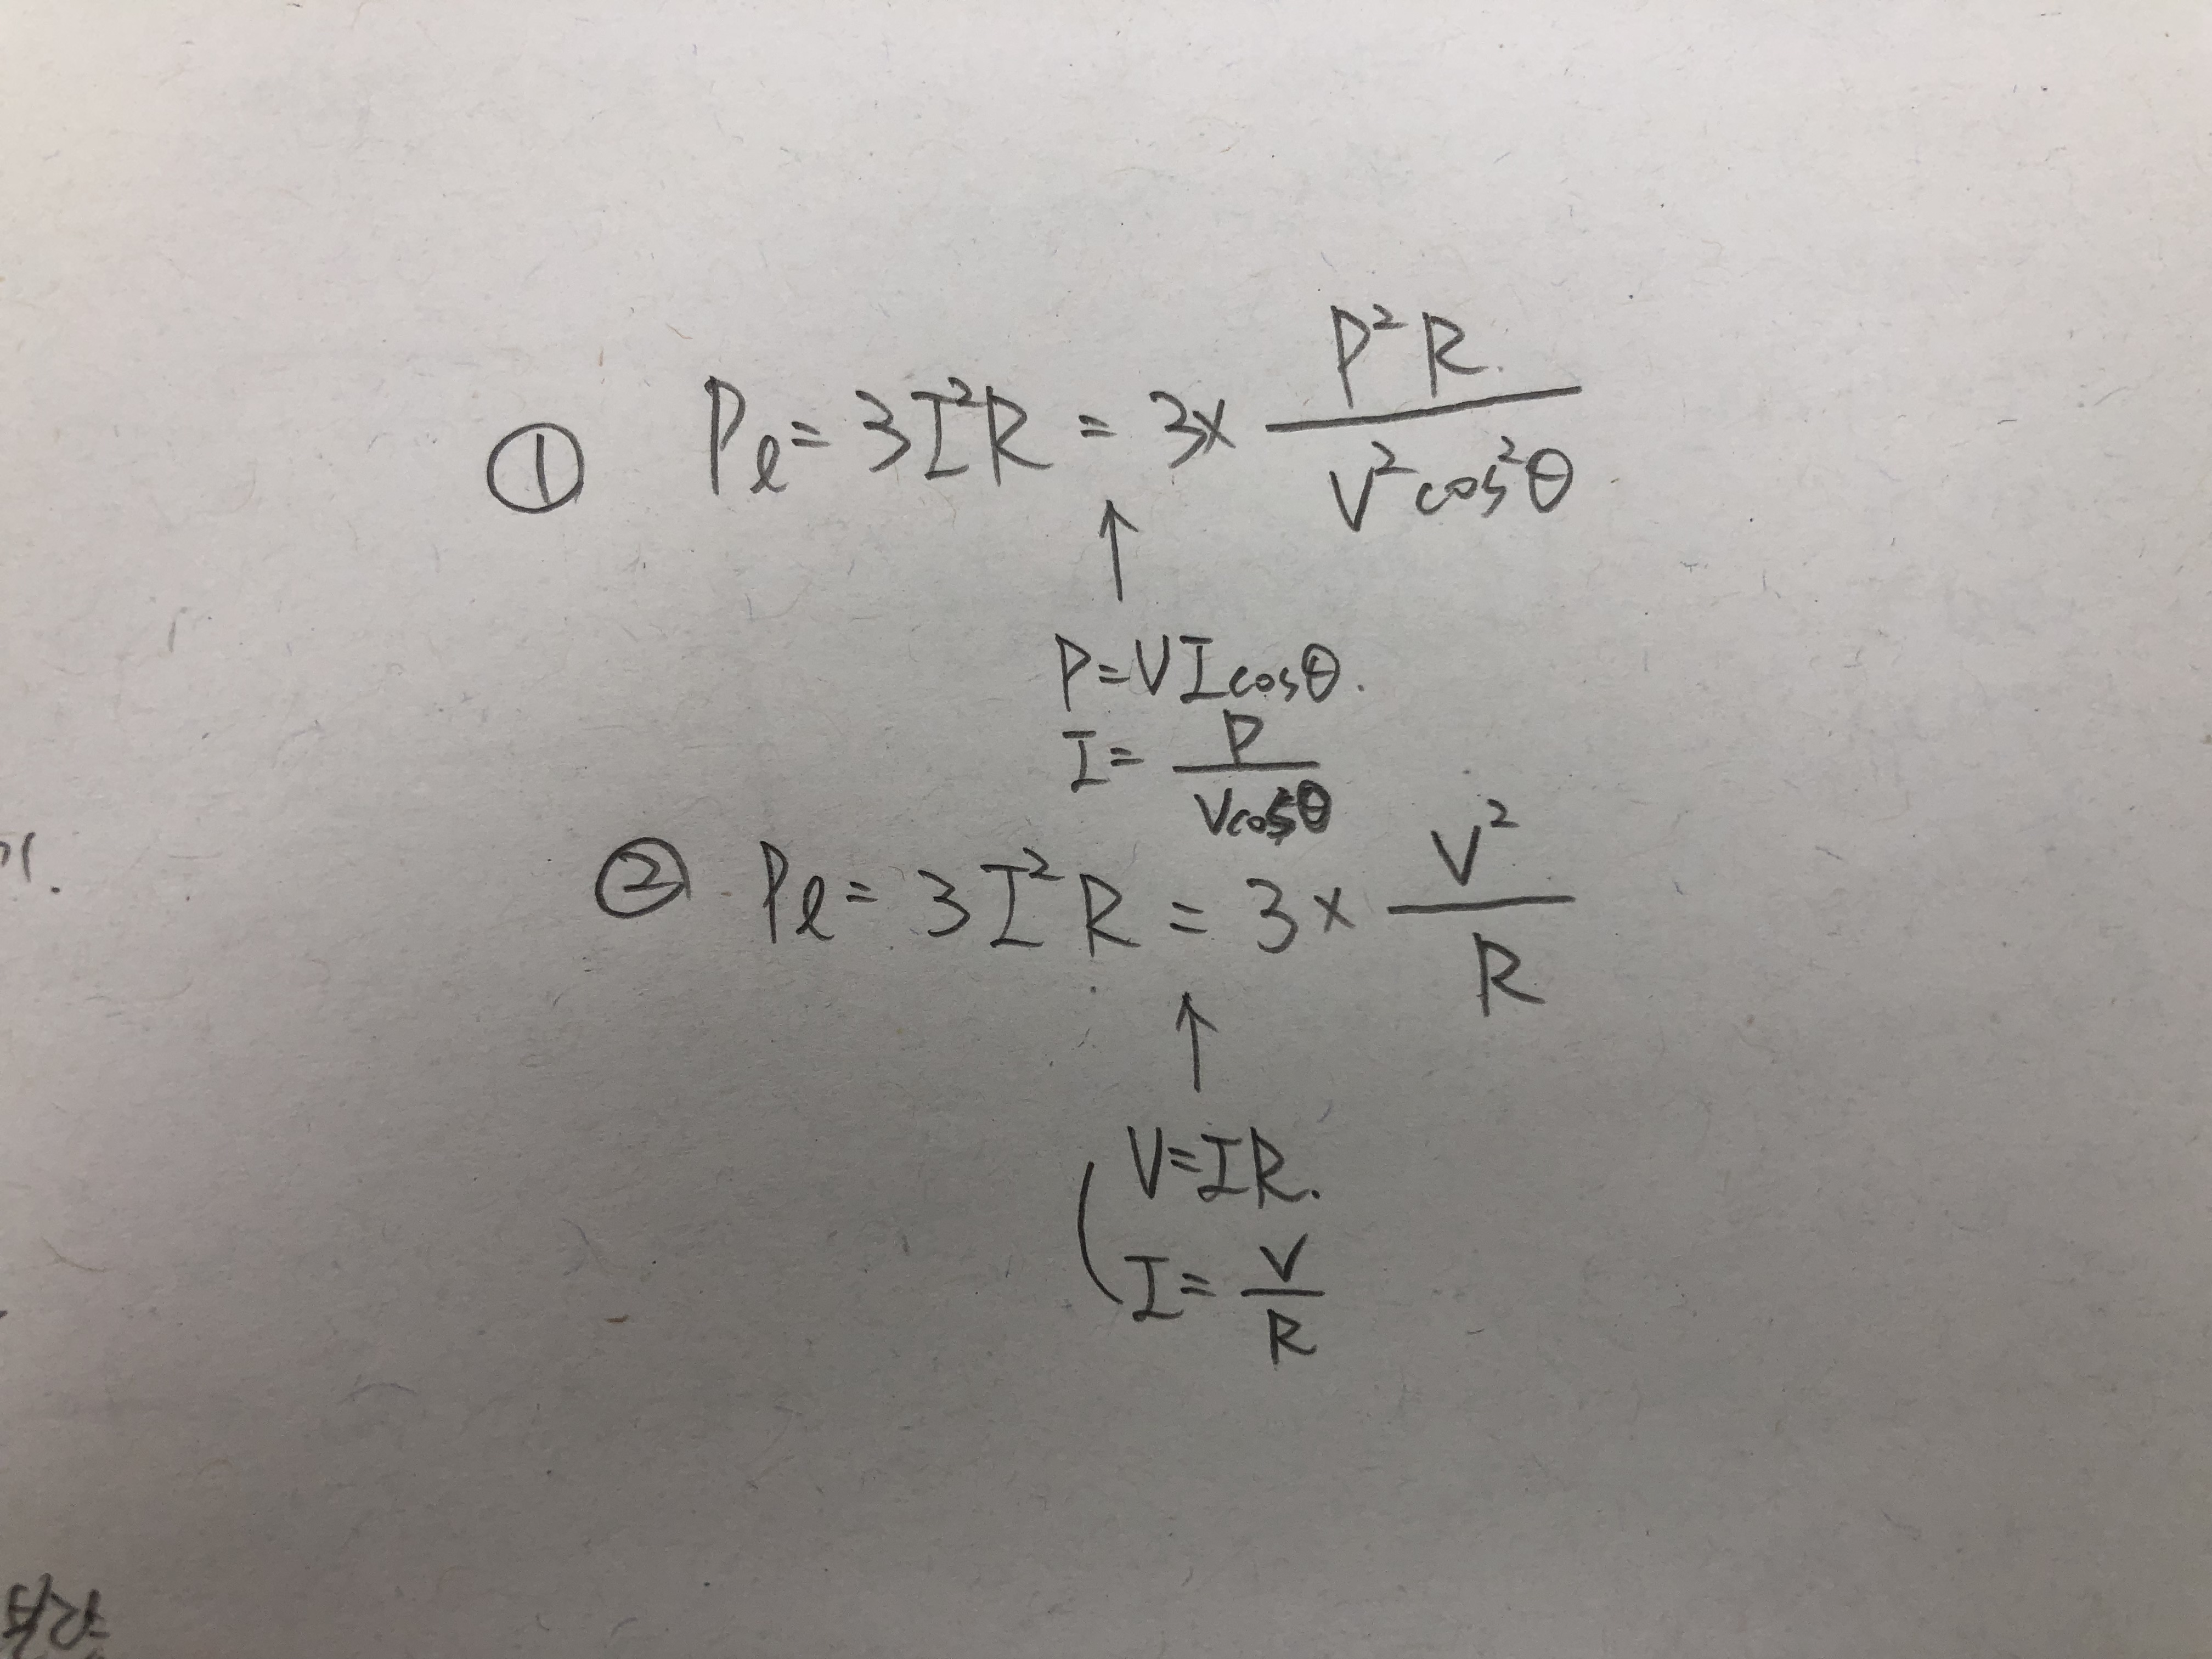 ① Pℓ = 3I²R = 3× P²R / V²cos²θ
↑
P=VIcosθ.
I= P / Vcosθ
② Pℓ = 3I²R = 3× V² / R
↑
V=IR.
I= V / R